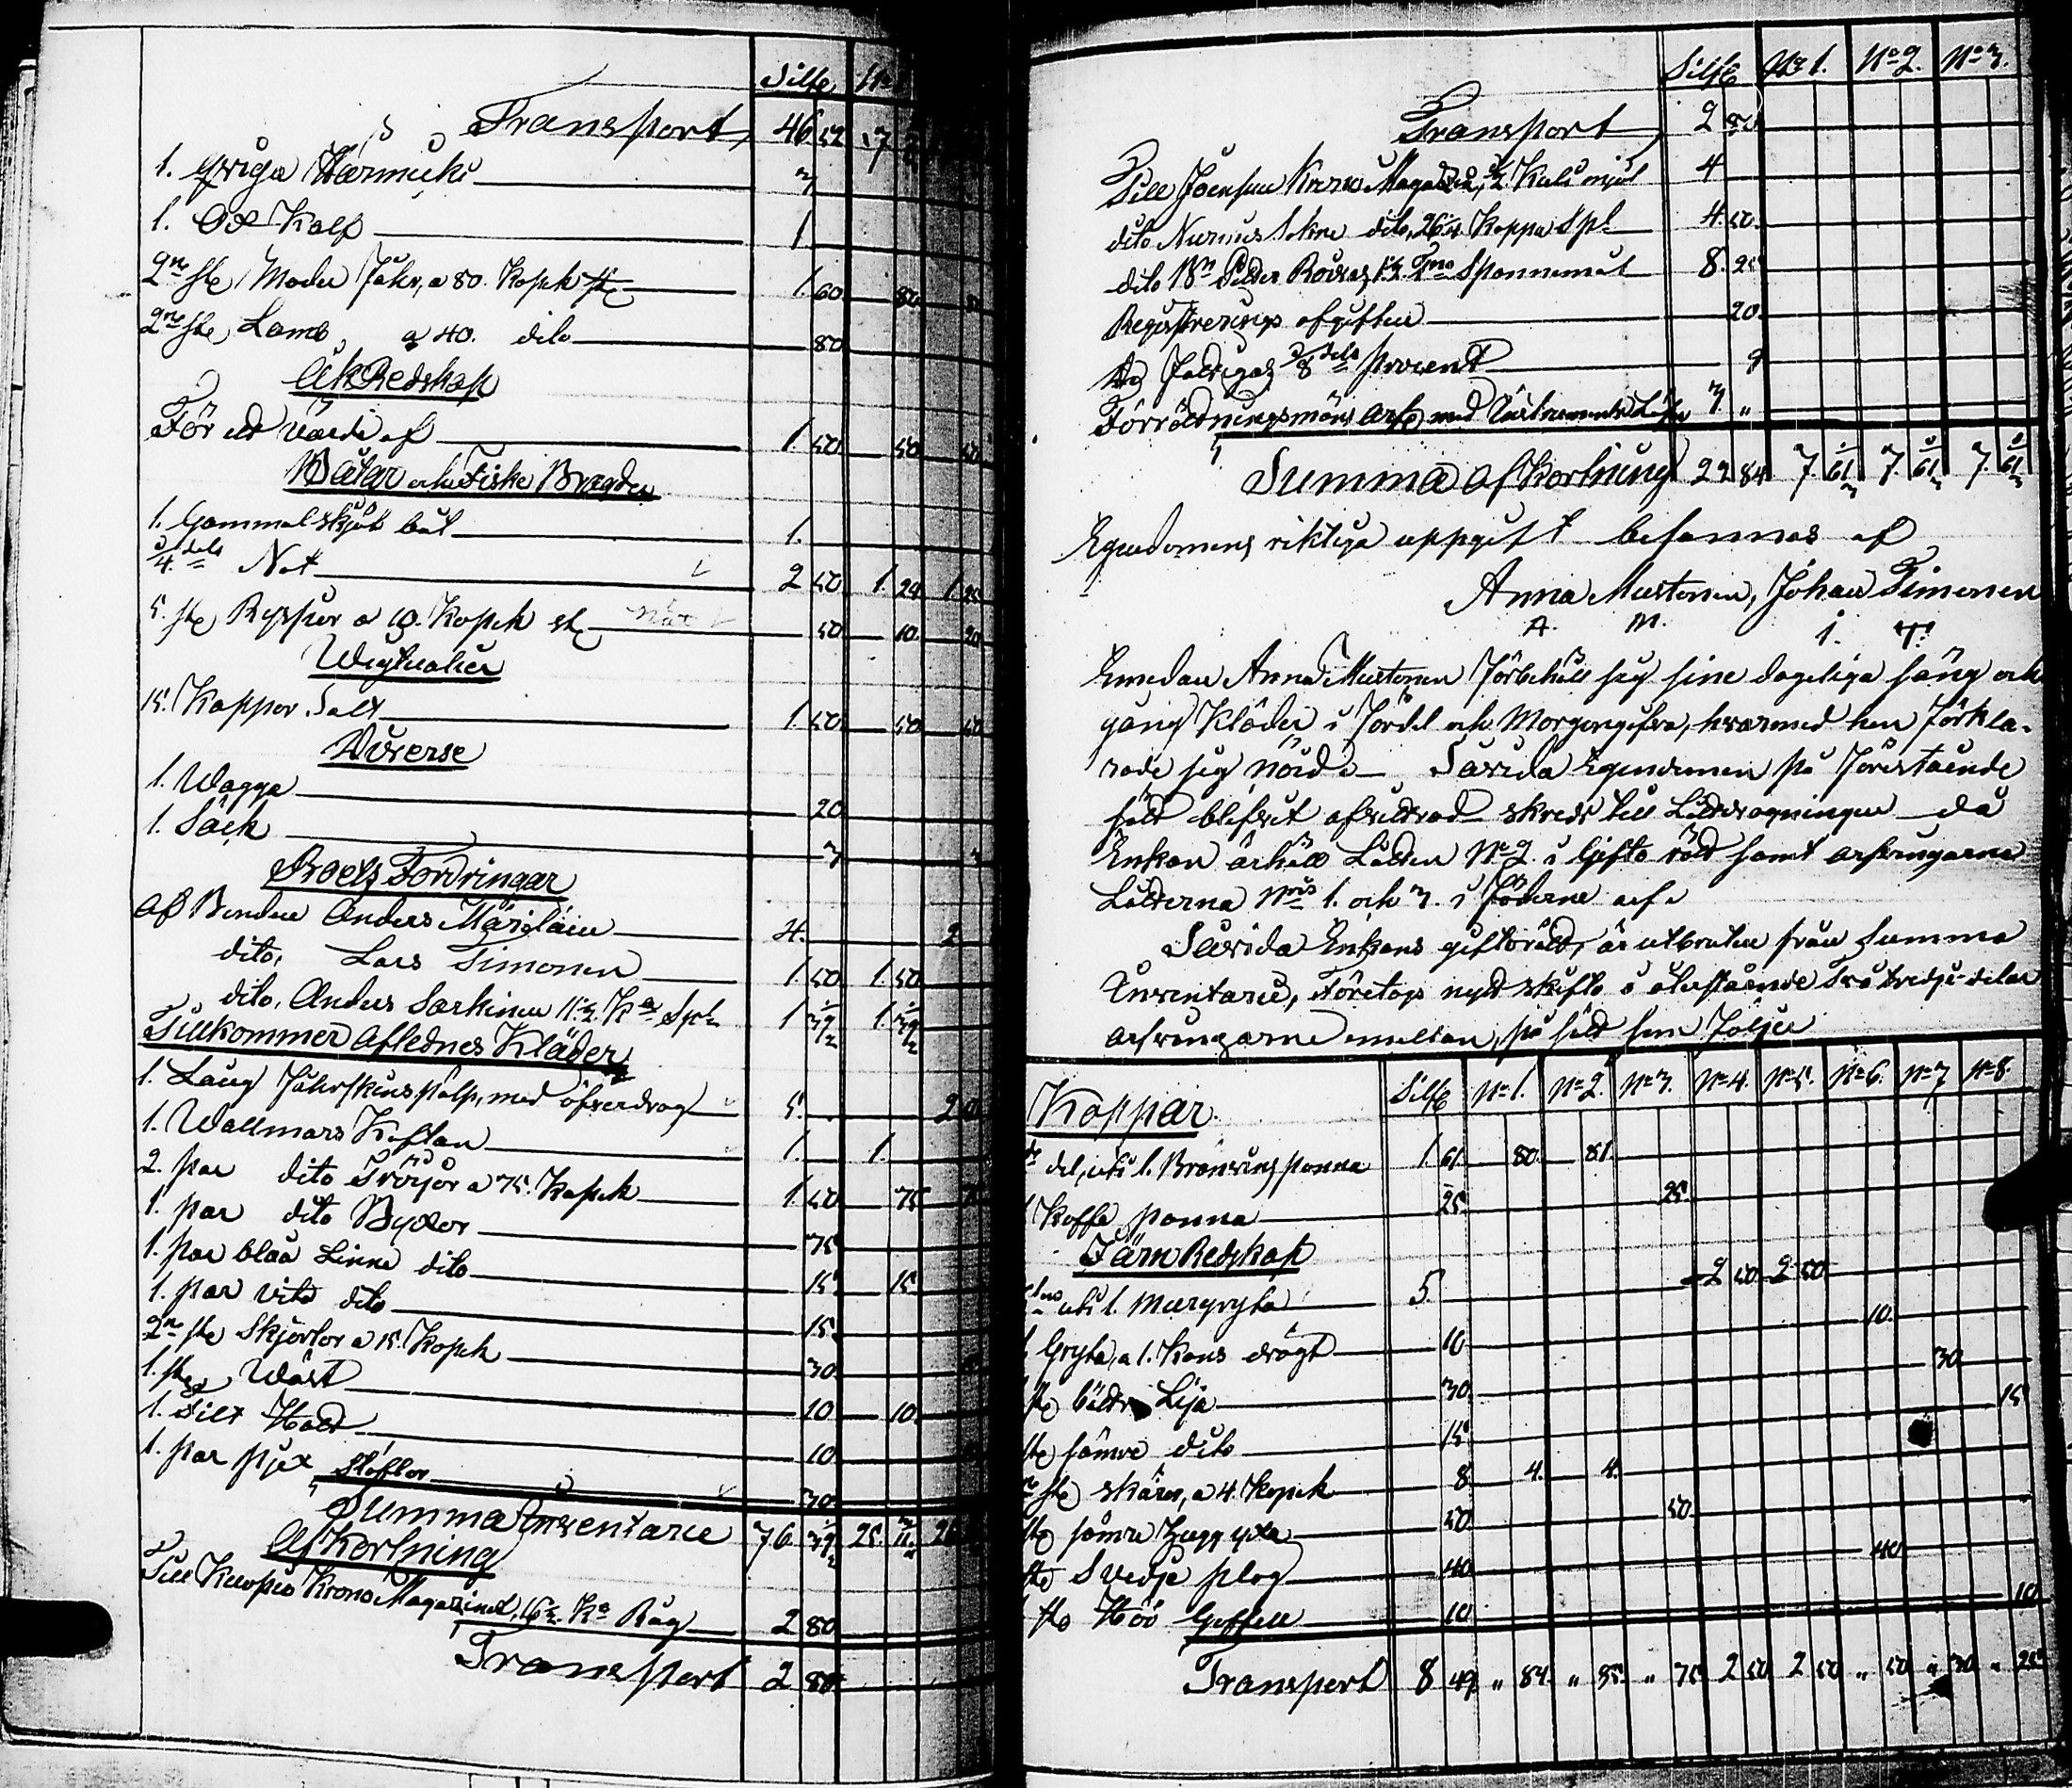 Silfr N:o
Transport 46 52 17
1. Qviga 3
1. Ox Kalf 1
2ne st Moder Fåhr, a 80. Kopek st 1. 60 80 80
2ne st Lamb a 40. dito 80
Åk Redskap
För ett värde af 1. 50 50 50
Båtar och Fiske Bragder
1. Gammal skjut båt 1.
1/4 dels Not 2 50 1. 25 1. 25
5. st Ryssjor a 10. Kopek st 50 10 20
Victualier
15. Kappor Salt 1. 50 50 50
Diverse
1. Wagga 20
1. Säck 3 3
Boets Fordringar
Af Bonden Anders 4. 2
dito, Lars Timonen 1. 50 1. 50
dito, Anders Sarkinen 11 1/2. Ka Spl 1 37 1/2 1. 37 1/2
Tillkommer Aflednes Kläder
1. Lång Fåhrskins päls, med öfverdrag 5. 2 50
1. Wallmars Kaftan 1. 1.
2. par dito Tröijor a 75. Kopek 1. 50 75 75
1. par dito Byxor 75
1. par blåa Linne dito 15 15
1. par vita dito 15
2ne st Skjortor a 15 Kopek 30
1. st Wäst 10 10
1. Filt Hatt 10
1. par pjex Stöflor 30
Summa Inventarie 76. 37 1/2 25. 11 26
Afkortning
Till Kuopio Krono Magazinet, 16 1/2. Ka Råg 2 80
Transport 2 80
Silfr N:o 1. N:o 2. N:o 3.
Transport 2 80
Till Joensuu Krono Magazin, 1/2 Kuli mjöl 4
dito Nurmis Sokne dito, 26 1/4 Kappa Spl 4. 50
dito Bn Peder 1 1/2. Tno Spannemål 8. 25
Registrerings afgiften 20
Dg Fattigas 1/8 dels procent 9
Förrättningsmäns Arf med Instruments Lösen 3 "
Summa afkortning 22 84 7. 61 1/3 7. 61 1/3 7. 61 1/3
Egendomens riktiga uppgift besannas af
Anna Mustonen, Johan Timonen
A. M. I. T.
Emedan Anna Mustonen förbehåll sig sine dageliga säng och
gång Kläder i fördel och Morgongåfva, hvarmed hon förkla-
rade sig nöjd. Sarida Egendomen på förestående
sätt blifvit afvittrad skreds till Lottdragningen då
Enkan ärhåll Lotten N:o 2. i Gifto rätt samt arfvingarne
Lotterna N:ris 1. och 3. i Fäderne arf.
Särida Enkans giftorätt är utbruten från Summa
Inventarie, företogs nytt skifte i återstående Två tredje delar
arfvingarne emellan, på sätt som följer
Koppar Silfr N:o 1. N:o 2. N:o 3. N:o 4. N:o 5. N:o 6. N:o 7 N:o 8.
del, uti 1. Bränvins panna 1. 61. 80. 81.
Kaffe panna 25 25
Järn Redskap
uti 1. Murgryta 5. 2 50 2 50
Gryta, a 1. Kans drägt 10 10.
st bättre Lija 30 30
st sämre dito 15 15
st skäror, a 4. Kopek 8 4. 4.
st sämre hugg yxa 50 50
st Svedje plog 40 40
st Hö Gaffell 10 10
Transport 8 49 " 84. " 85. " 75 2 50 2 50 " 50 " 30 " 25